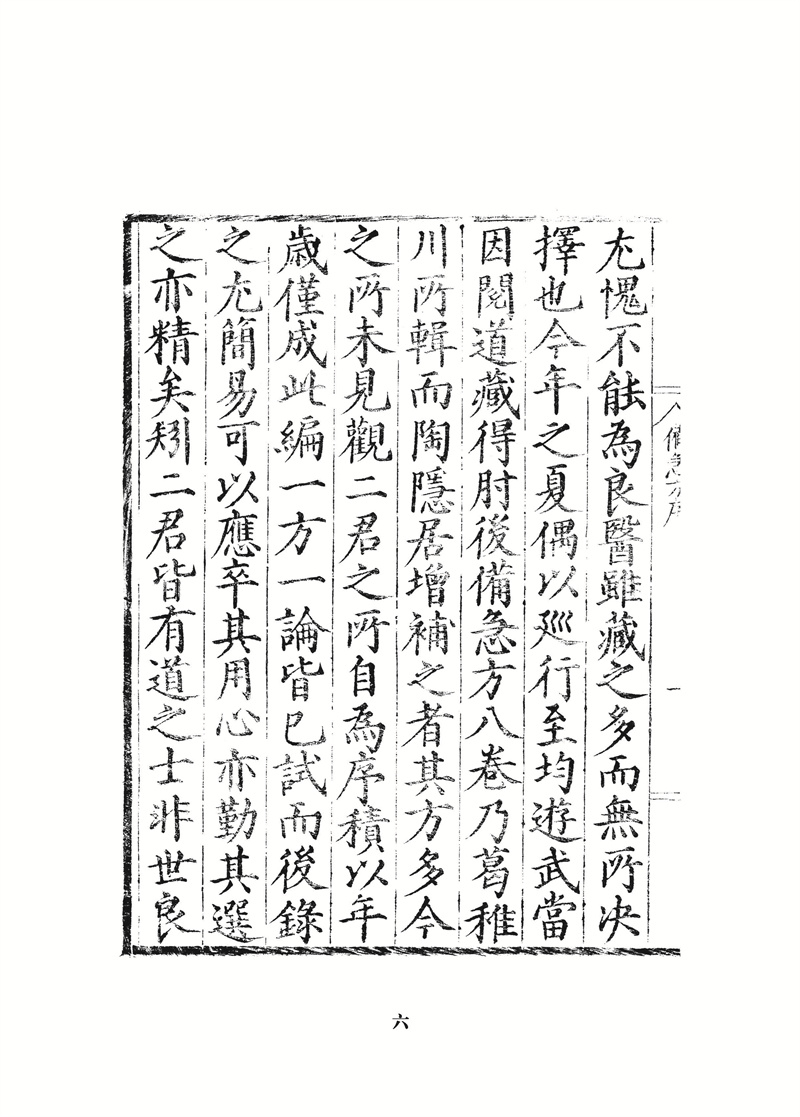 尤愧不能為良醫雖藏之多而無所决
擇也今年之夏偶以廵行至均遊武當
因閱道藏得肘後備急方八卷乃葛稚
川所輯而陶隱居增補之者其方多今
之所未見觀二君之所自為序積以年
歳僅成此編一方一論皆已試而後錄
之尤簡易可以應卒其用心亦勤其選
之亦精矣矧二君皆有道之士非世良
備急方序
一
六